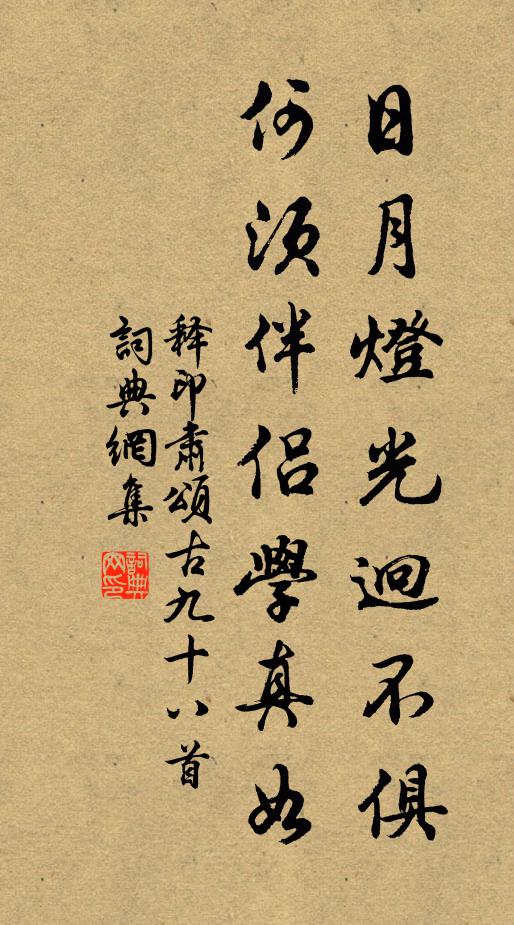 日月燈光迥不俱
何須伴侶學真如
释印肅頌古九十八首
詞典網集
詞典網印